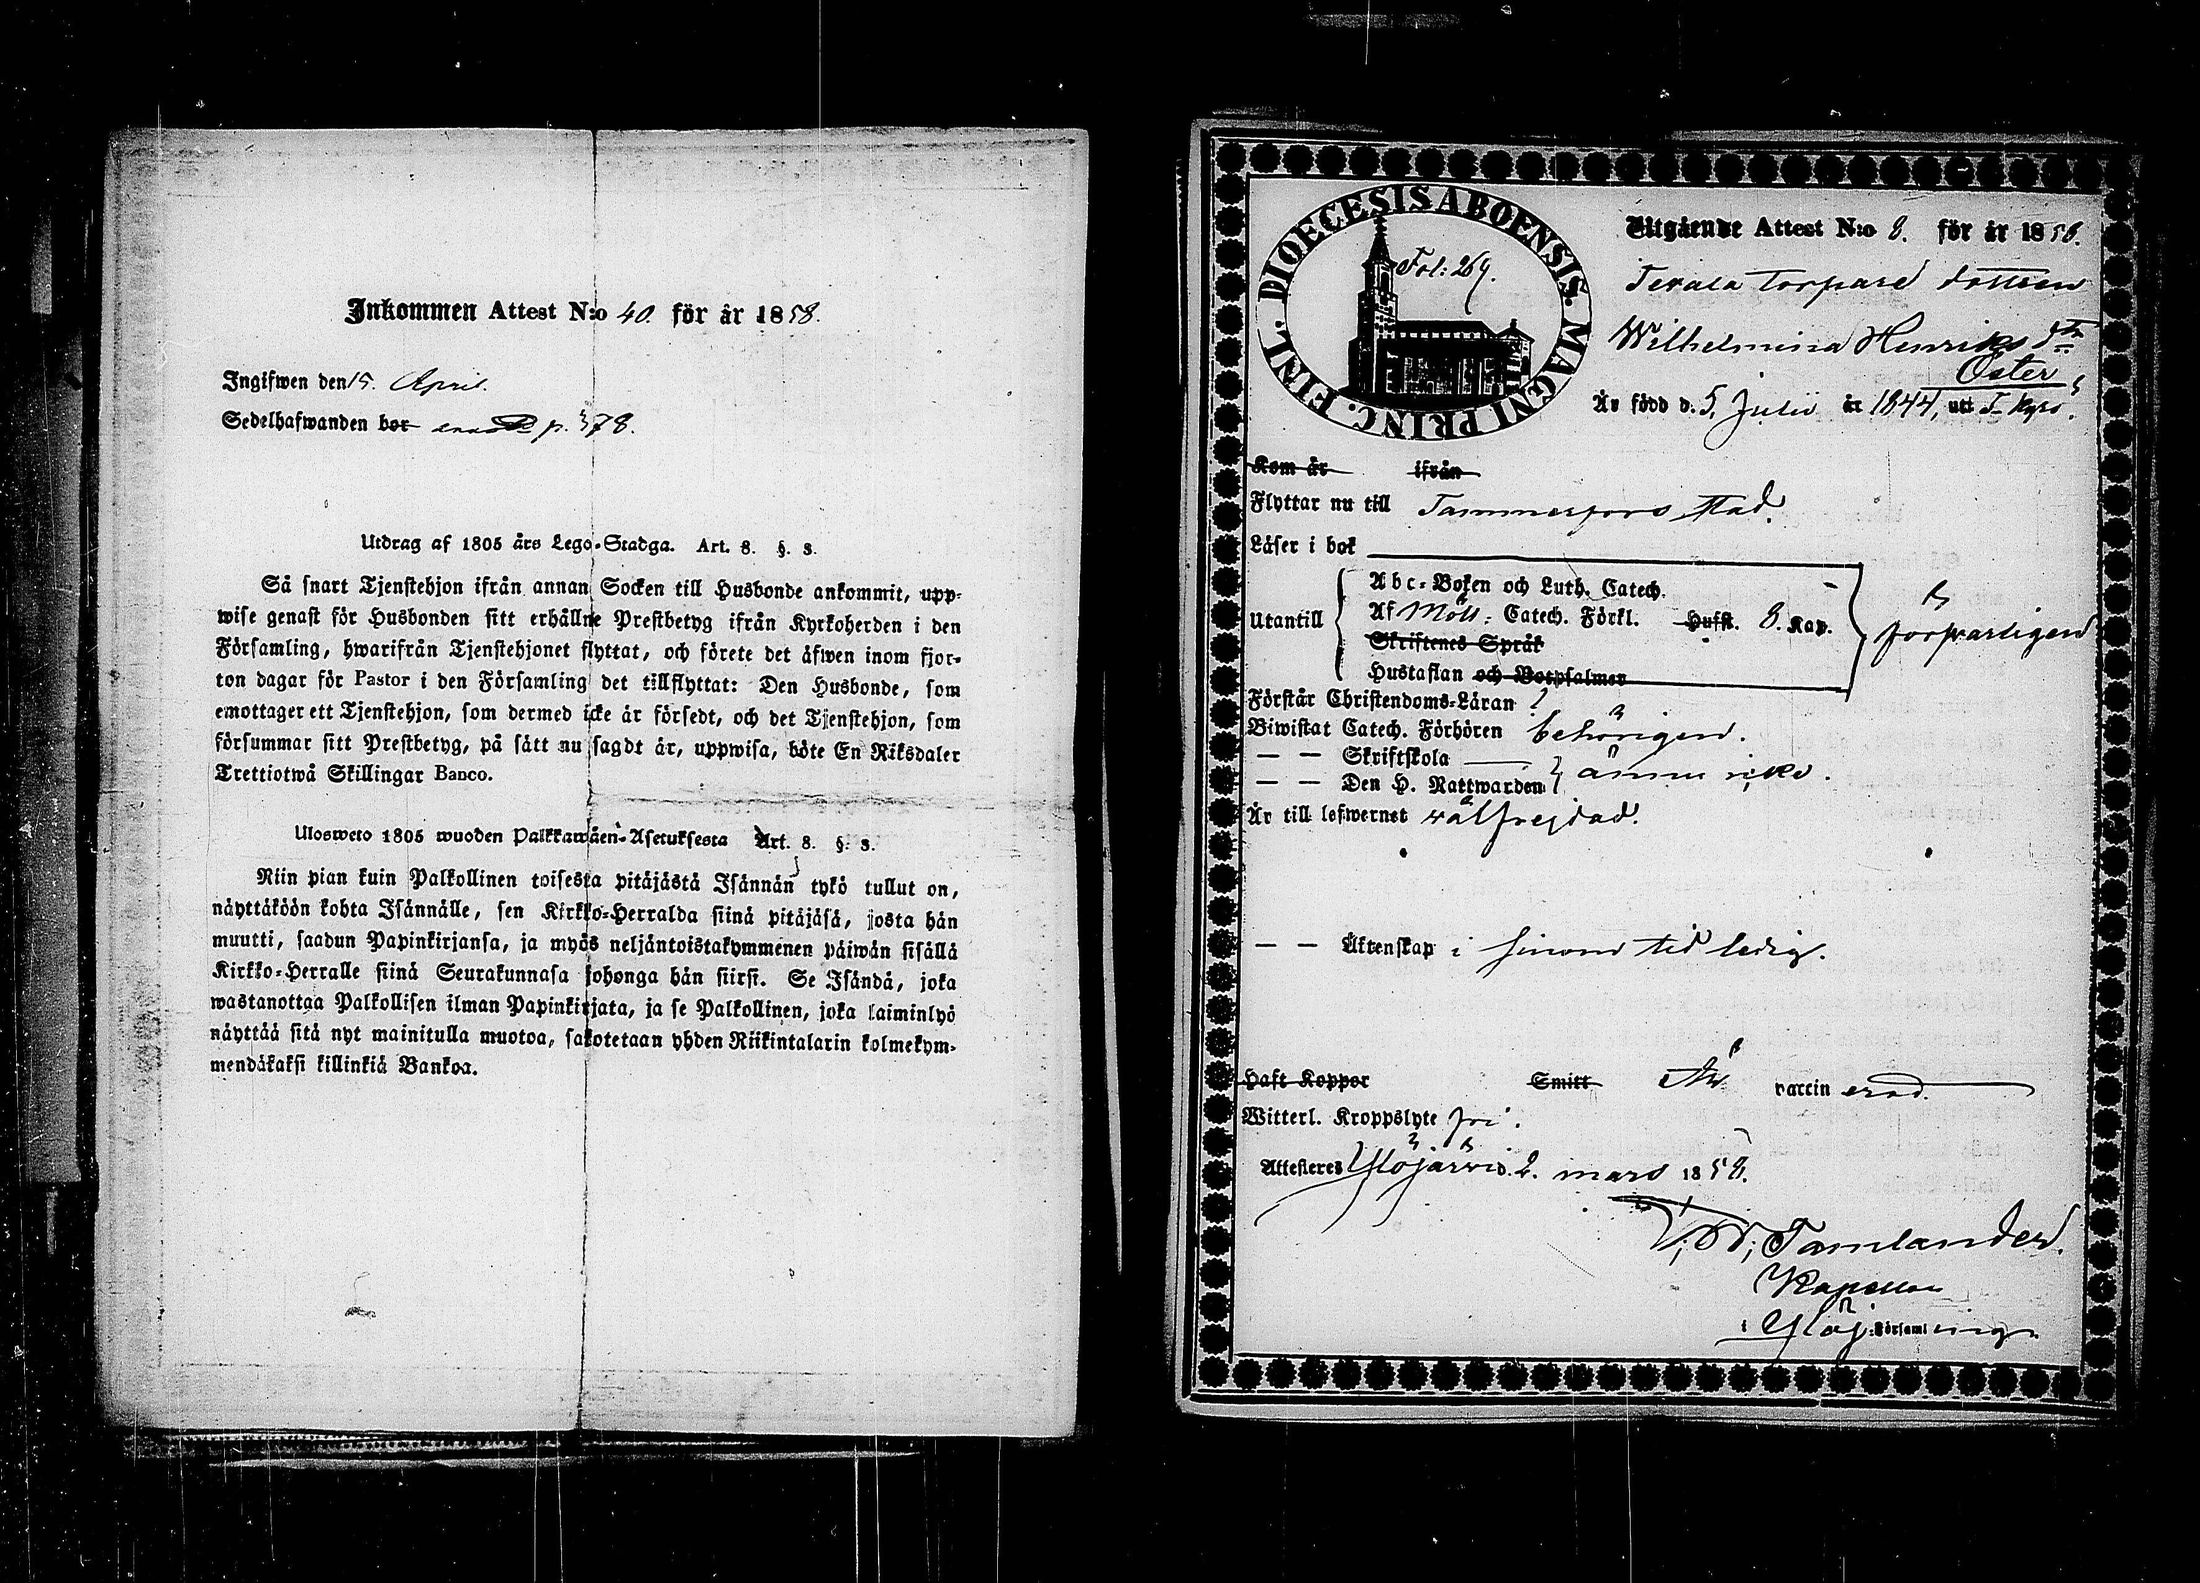 Inkommen Attest N:o 40. för år 1858.
Ingifwen den 15. April.
Sedelhafwanden bor p. 378.
Utdrag af 1805 års Lego-Stadga. Art. 8. §. 3.
Så snart Tjenstehjon ifrån annan Socken till Husbonde ankommit, upp-
wise genast för Husbonden sitt erhållne Prestbetyg ifrån Kyrkoherden i den
Församling, hwarifrån Tjenstehjonet flyttat, och förete det äfwen inom fjor-
ton dagar för Pastor i den Församling det tillflyttat: Den Husbonde, som
emottager ett Tjenstehjon, som dermed icke är försedt, och det Tjenstehjon, som
försummar sitt Prestbetyg, på sätt nu sagdt är, uppwisa, böte En Riksdaler
Trettiotwå Skillingar Banco.
Ulosweto 1805 wuoden Palkkawäen-Asetuksesta Art. 8. §. 3.
Niin pian kuin Palkollinen toisesta pitäjästä Isännän tykö tullut on,
näyttäköön kohta Isännälle, sen Kirkko-Herralda siinä pitäjäsä, josta hän
muutti, saadun Papinkirjansa, ja myös neljäntoistakymmenen päiwän sisällä
Kirkko-Herralle siinä Seurakunnasa johonga hän siirsi. Se Isändä, joka
wastanottaa Palkollisen ilman Papinkirjata, ja se Palkollinen, joka laiminlyö
näyttää sitä nyt mainitulla muotoa, sakotetaan yhden Riikintalarin kolmekym-
mendäkaksi killinkiä Bankoa.
DIOECESIS ABOENSIS. MAGNI PRINC. FINL.
Fol: 269.
Utgående Attest N:o 8. för år 1858.
Torpare dottren
Wilhelmina Henriks dtr
Öster
Är född d. 5. Julii år 1844, uti T. Kyrö.
Kom år ifrån
Flyttar nu till Tammerfors stad.
Läser i bok
Utantill
Abc-Boken och Luth. Catech.
Af Möll: Catech. Förkl. Hufst. 8. Kap.
Skriftenes Språk
Hustaflan och Botpsalmer
försvarligen
Förstår Christendoms-Läran
Biwistat Catech. Förhören behörigen.
— — Skriftskola
— — Den H. Nattwarden ännu icke.
Är till lefwernet wälfrejdad.
— — Äktenskap i sinom tid ledig.
Haft Koppor Smitt Är vaccin erad.
Witterl. Kroppslyte fri.
Attesteres Ylöjärwi d. 2. mars 1858.
Tamlander.
Kapellan
i Ylöj: Församl ing.